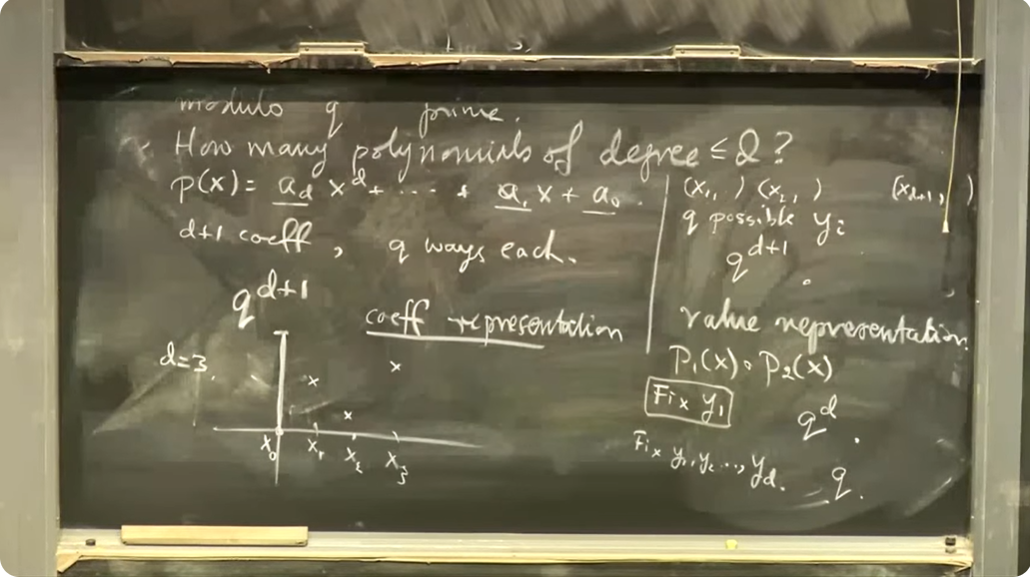 modulo q prime.
How many polynomials of degree ≤ d?
p(x) = a_d x^d + ··· + a_1 x + a_0.
d+1 coeff, q ways each.
q^{d+1}
coeff representation
d=3.
x_0 x_1 x_2 x_3
(x_1, ) (x_2, ) (x_{d+1}, )
q possible y_i
q^{d+1}.
value representation.
P_1(x) · P_2(x)
Fix y_1 q^d.
Fix y_1, y_2 ..., y_d. q.